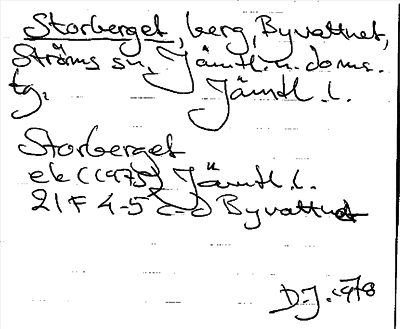 Storberget, berg, Byvattnet,
Ströms sn, Jämtl. n. doms.
tg. Jämtl. l.
Storberget
ek (1975) Jämtl. l.
21F 4-5 c-d Byvattnet
D-J. 1978